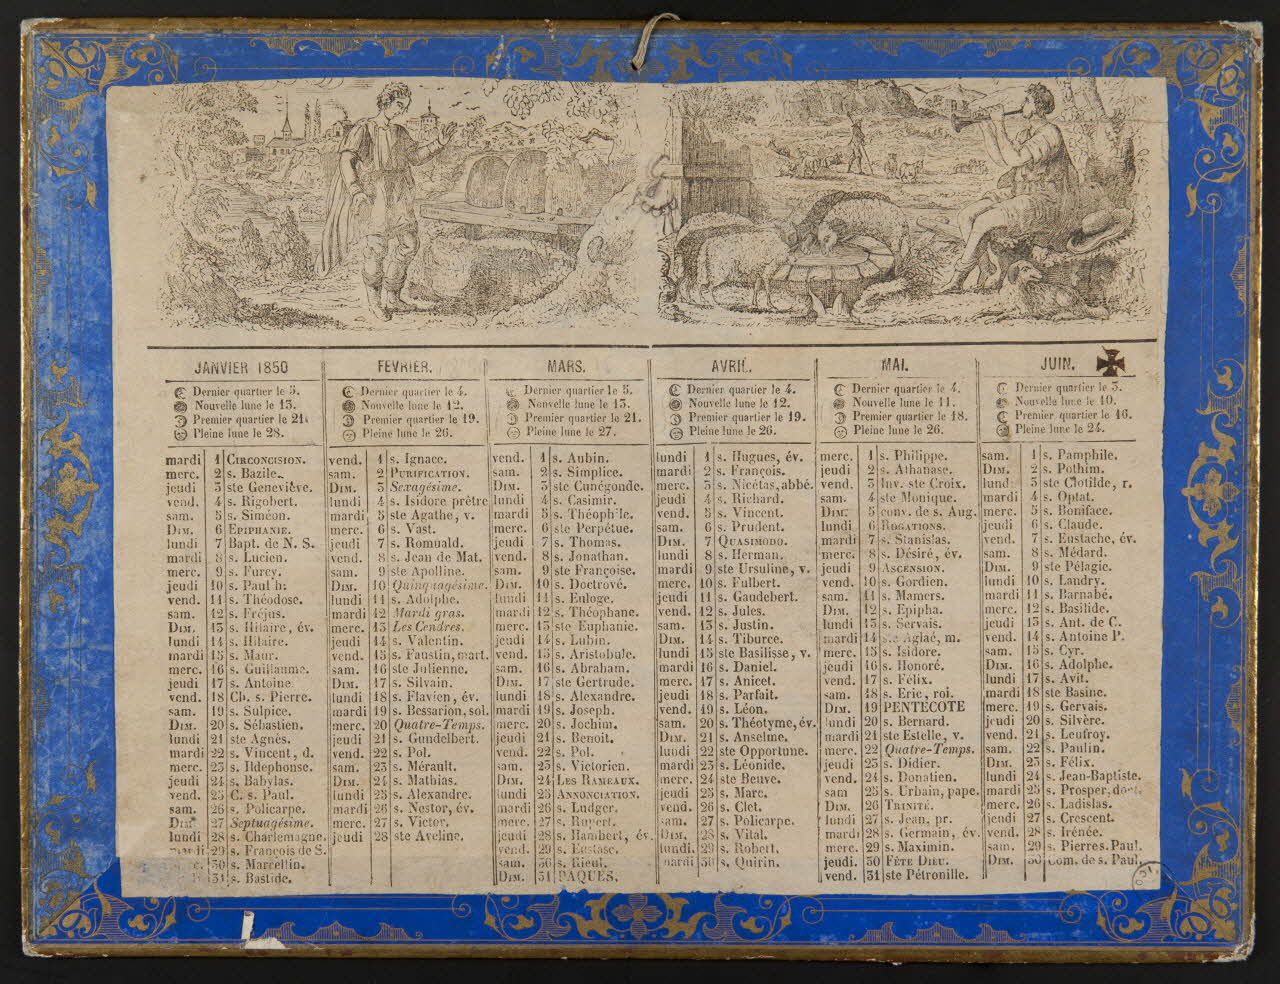 JANVIER 1850
Dernier quartier le 5.
Nouvelle lune le 13.
Premier quartier le 21.
Pleine lune le 28.
mardi 1 CIRCONCISION.
merc. 2 s. Bazile.
jeudi 3 ste Geneviève.
vend. 4 s. Rigobert.
sam. 5 s. Siméon.
DIM. 6 EPIPHANIE.
lundi 7 Bapt. de N. S.
mardi 8 s. Lucien.
merc. 9 s. Furcy.
jeudi 10 s. Paul h.
vend. 11 s. Théodose.
sam. 12 s. Fréjus.
DIM. 13 s. Hilaire, év.
lundi 14 s. Hilaire.
mardi 15 s. Maur.
merc. 16 s. Guillaume.
jeudi 17 s. Antoine.
vend. 18 Ch. s. Pierre.
sam. 19 s. Sulpice.
DIM. 20 s. Sébastien.
lundi 21 ste Agnès.
mardi 22 s. Vincent, d.
merc. 23 s. Ildephonse.
jeudi 24 s. Babylas.
vend. 25 C. s. Paul.
sam. 26 s. Policarpe.
DIM. 27 Septuagésime.
lundi 28 s. Charlemagne.
mardi 29 s. François de S.
30 s. Marcellin.
31 s. Bastide.
FEVRIER.
Dernier quartier le 4.
Nouvelle lune le 12.
Premier quartier le 19.
Pleine lune le 26.
vend. 1 s. Ignace.
sam. 2 PURIFICATION.
DIM. 3 Sexagésime.
lundi 4 s. Isidore prêtre
mardi 5 ste Agathe, v.
merc. 6 s. Vast.
jeudi 7 s. Romuald.
vend. 8 s. Jean de Mat.
sam. 9 ste Apolline.
DIM. 10 Quinquagésime.
lundi 11 s. Adolphe.
mardi 12 Mardi gras.
merc. 13 Les Cendres.
jeudi 14 s. Valentin.
vend. 15 s. Faustin, mart.
sam. 16 ste Julienne.
DIM. 17 s. Silvain.
lundi 18 s. Flavien, év.
mardi 19 s. Bessarion, sol.
merc. 20 Quatre-Temps.
jeudi 21 s. Gundelbert.
vend. 22 s. Pol.
sam. 23 s. Mérault.
DIM. 24 s. Mathias.
lundi 25 s. Alexandre.
mardi 26 s. Nestor, év.
merc. 27 s. Victor.
jeudi 28 ste Aveline.
MARS.
Dernier quartier le 5.
Nouvelle lune le 13.
Premier quartier le 21.
Pleine lune le 27.
vend. 1 s. Aubin.
sam. 2 s. Simplice.
DIM. 3 ste Cunégonde.
lundi 4 s. Casimir.
mardi 5 s. Théophile.
merc. 6 ste Perpétue.
jeudi 7 s. Thomas.
vend. 8 s. Jonathan.
sam. 9 ste Françoise.
DIM. 10 s. Doctrové.
lundi 11 s. Euloge.
mardi 12 s. Théophane.
merc. 13 ste Euphanie.
jeudi 14 s. Lubin.
vend. 15 s. Aristobule.
sam. 16 s. Abraham.
DIM. 17 ste Gertrude.
lundi 18 s. Alexandre.
mardi 19 s. Joseph.
merc. 20 s. Jochim.
jeudi 21 s. Benoit.
vend. 22 s. Pol.
sam. 23 s. Victorien.
DIM. 24 LES RAMEAUX.
lundi 25 ANNONCIATION.
mardi 26 s. Ludger.
merc. 27 s. Rupert.
jeudi 28 s. Humbert, év.
vend. 29 s. Eustase.
sam. 30 s. Rieul.
DIM. 31 PAQUES.
AVRIL.
Dernier quartier le 4.
Nouvelle lune le 12.
Premier quartier le 19.
Pleine lune le 26.
lundi 1 s. Hugues, év.
mardi 2 s. François.
merc. 3 s. Nicétas, abbé.
jeudi 4 s. Richard.
vend. 5 s. Vincent.
sam. 6 s. Prudent.
DIM. 7 QUASIMODO.
lundi 8 s. Herman.
mardi 9 ste Ursuline, v.
merc. 10 s. Fulbert.
jeudi 11 s. Gaudebert.
vend. 12 s. Jules.
sam. 13 s. Justin.
DIM. 14 s. Tiburce.
lundi 15 ste Basilisse, v.
mardi 16 s. Daniel.
merc. 17 s. Anicet.
jeudi 18 s. Parfait.
vend. 19 s. Léon.
sam. 20 s. Théotyme, év.
DIM. 21 s. Anselme.
lundi 22 ste Opportune.
mardi 23 s. Léonide.
merc. 24 ste Beuve.
jeudi 25 s. Marc.
vend. 26 s. Clet.
sam. 27 s. Policarpe.
DIM. 28 s. Vital.
lundi 29 s. Robert.
mardi 30 s. Quirin.
MAI.
Dernier quartier le 4.
Nouvelle lune le 11.
Premier quartier le 18.
Pleine lune le 26.
merc. 1 s. Philippe.
jeudi 2 s. Athanase.
vend. 3 Inv. ste Croix.
sam. 4 ste Monique.
DIM. 5 conv. de s. Aug.
lundi 6 ROGATIONS.
mardi 7 s. Stanislas.
merc. 8 s. Désiré, év.
jeudi 9 ASCENSION.
vend. 10 s. Gordien.
sam. 11 s. Mamers.
DIM. 12 s. Epipha.
lundi 13 s. Servais.
mardi 14 ste Aglaé, m.
merc. 15 s. Isidore.
jeudi 16 s. Honoré.
vend. 17 s. Félix.
sam. 18 s. Eric, roi.
DIM. 19 PENTECOTE
lundi 20 s. Bernard.
mardi 21 ste Estelle, v.
merc. 22 Quatre-Temps.
jeudi 23 s. Didier.
vend. 24 s. Donatien.
sam 25 s. Urbain, pape.
DIM. 26 TRINITÉ.
lundi 27 s. Jean, pr.
mardi 28 s. Germain, év.
merc. 29 s. Maximin.
jeudi. 30 FÊTE DIEU.
vend. 31 ste Pétronille.
JUIN.
Dernier quartier le 3.
Nouvelle lune le 10.
Premier quartier le 16.
Pleine lune le 24.
sam. 1 s. Pamphile.
DIM. 2 s. Pothim.
lund. 3 ste Clotilde, r.
mardi 4 s. Optat.
merc. 5 s. Boniface.
jeudi 6 s. Claude.
vend. 7 s. Eustache, év.
sam. 8 s. Médard.
DIM. 9 ste Pélagie.
lundi 10 s. Landry.
mardi 11 s. Barnabé.
merc. 12 s. Basilide.
jeudi 13 s. Ant. de C.
vend. 14 s. Antoine P.
sam. 15 s. Cyr.
DIM. 16 s. Adolphe.
lundi 17 s. Avit.
mardi 18 ste Basine.
merc. 19 s. Gervais.
jeudi 20 s. Silvère.
vend. 21 s. Leufroy.
sam. 22 s. Paulin.
DIM. 23 s. Félix.
lundi 24 s. Jean-Baptiste.
mardi 25 s. Prosper, doct.
merc. 26 s. Ladislas.
jeudi 27 s. Crescent.
vend. 28 s. Irénée.
sam. 29 s. Pierre s. Paul.
DIM. 30 Com. de s. Paul.